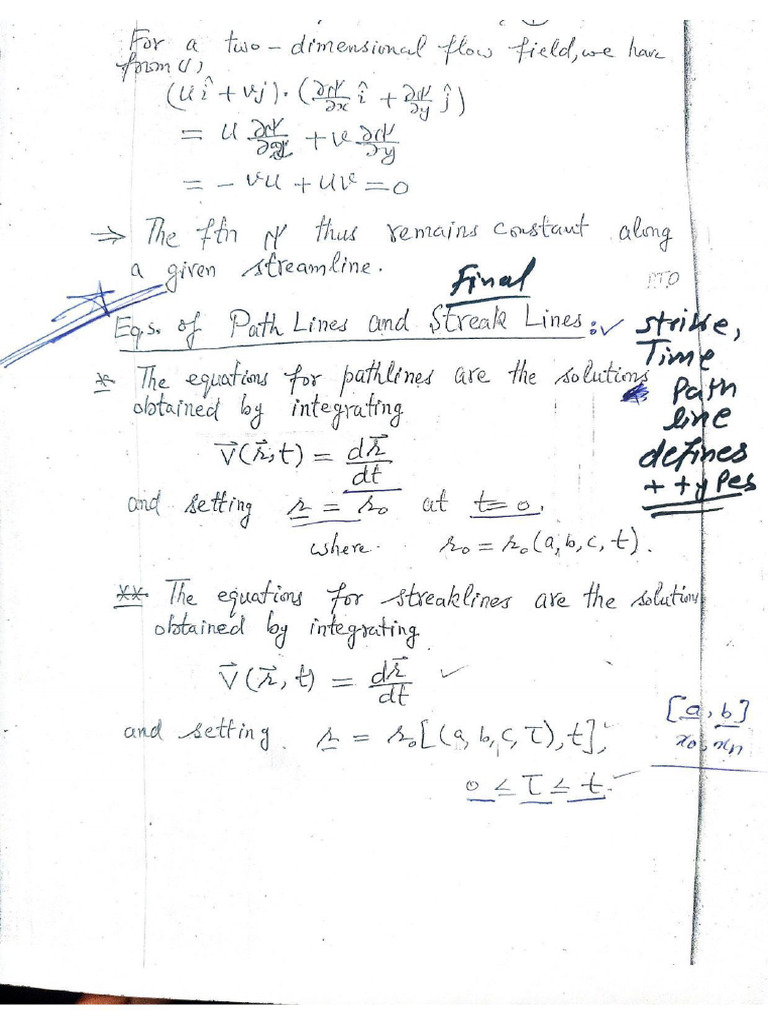 For a two-dimensional flow field, we have
from (1)
(u î + vĵ)·(∂ψ/∂x î + ∂ψ/∂y ĵ)
= u ∂ψ/∂x + v ∂ψ/∂y
= - vu + uv = 0
⇒ The ftn ψ thus remains constant along
a given streamline.
PTO
Final
Eqs. of Path Lines and Streak Lines:✓
* The equations for pathlines are the solutions
obtained by integrating
V⃗(r⃗,t) = dr⃗/dt
and setting r = r₀ at t=0,
where r₀ = r₀(a,b,c,t).
** The equations for streaklines are the solutions
obtained by integrating
V⃗(r⃗,t) = dr⃗/dt ✓
and setting r = r₀[(a,b,c,τ),t],
0 ≤ τ ≤ t.
Time
Path
line
defines
types
[a,b]
x₀,xn